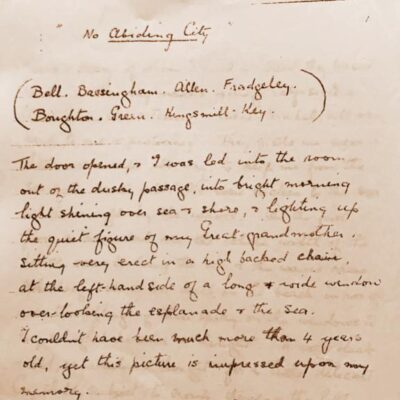 " No Abiding City "
1
( Bell. Bassingham. Allen. Fradgeley.
Boughton. Green. Kingsmill. Key. )
The door opened, & I was led into the room
out of the dusky passage, into bright morning
light shining over sea & shore, & lighting up
the quiet figure of my Great-grandmother.
Sitting very erect in a high backed chair,
at the left-hand side of a long & wide window
over-looking the esplanade & the sea.
I couldn't have been much more than 4 years
old, yet this picture is impressed upon my
memory.